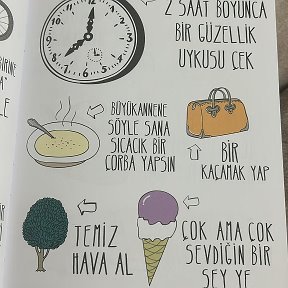 2 SAAT BOYUNCA
BİR GÜZELLİK
UYKUSU ÇEK
BİRİNE
BÜYÜKANNENE
SÖYLE SANA
SICACIK BİR
ÇORBA YAPSIN
BİR
KAÇAMAK YAP
TEMİZ
HAVA AL
ÇOK AMA ÇOK
SEVDİĞİN BİR
ŞEY YE